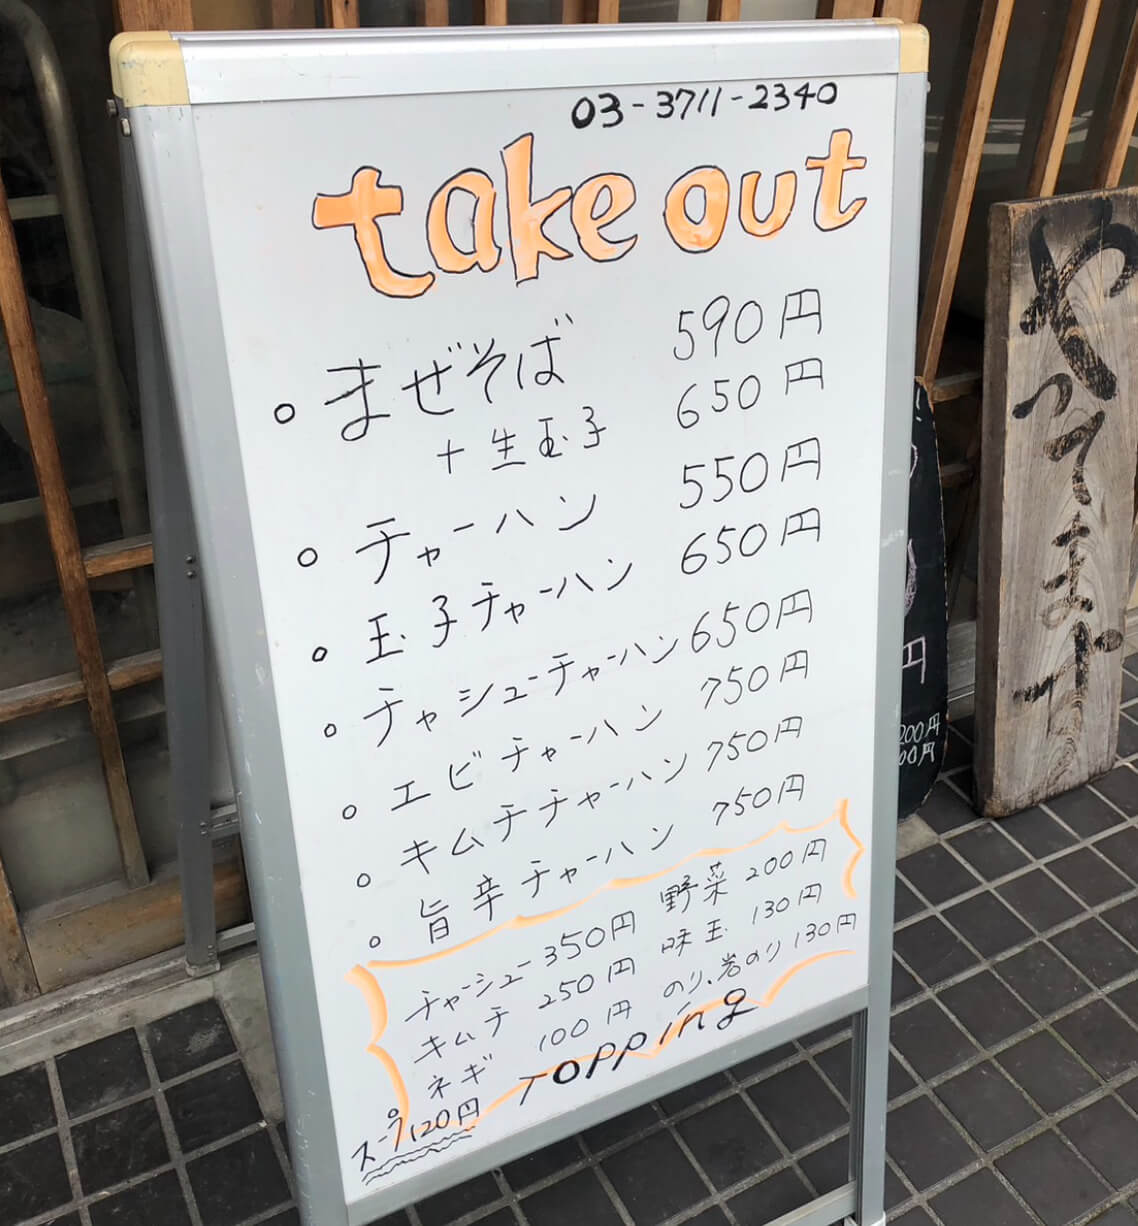 03-3711-2340
take out
○ まぜそば 590円
+生玉子 650円
○ チャーハン 550円
○ 玉子チャーハン 650円
○ チャシューチャーハン 650円
○ エビチャーハン 750円
○ キムチチャーハン 750円
○ 旨辛チャーハン 750円
チャーシュー 350円 野菜 200円
キムチ 250円 味玉 130円
ネギ 100円 のり、岩のり 130円
スープ120円 Topping
やってます
円
200円
00円